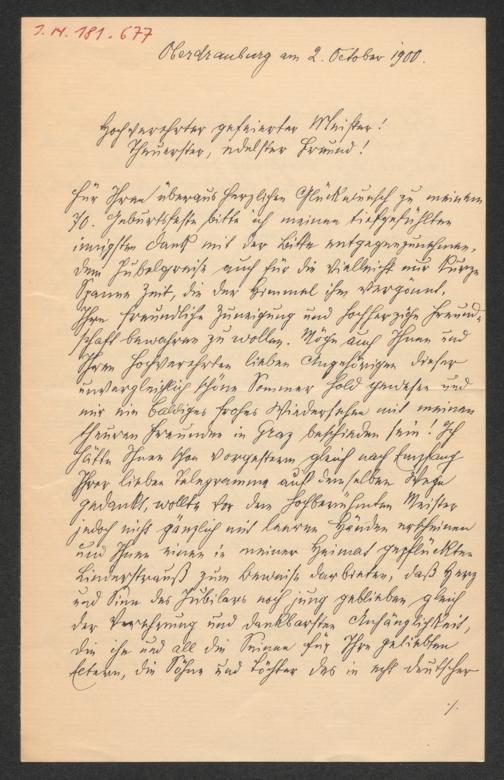 I.N. 181.677
Oberdrauburg am 2. October 1900.
Hochverehrter gefeierter Meister!
Theuerster, edelster Freund!
Für Ihren überaus herzlichen Glückwunsch zu meinem
70. Geburtsfeste bitte ich meinen tiefgefühlten
innigsten Dank mit der Bitte entgegenzunehmen,
dem Jubelgreise auch für die vielleicht nur kurze
Spanne Zeit, die der Himmel ihm vergönnt,
Ihre freundliche Zuneigung und hochherzige Freund-
schaft bewahren zu wollen. Möge auch Ihnen und
Ihren hochverehrten lieben Angehörigen dieser
unvergleichlich schöne Sommer hold gewesen und
mir ein baldiges frohes Wiedersehen mit meinen
theuren Freunden in Graz beschieden sein! Ich
hätte Ihnen schon vorgestern gleich nach Empfang
Ihrer lieben Telegramme auf demselben Wege
gedankt, wollte vor dem hochberühmten Meister
jedoch nicht gänzlich mit leeren Händen erscheinen
und Ihnen einen in meiner Heimat gepflückten
Liederstrauß zum Beweise darbieten, daß Herz
und Sinn des Jubilars noch jung geblieben gleich
der Verehrung und dankbarsten Anhänglichkeit,
die ihn und all die Seinen für Ihre geliebten
Eltern, die Söhne und Töchter des in echt deutscher
./.